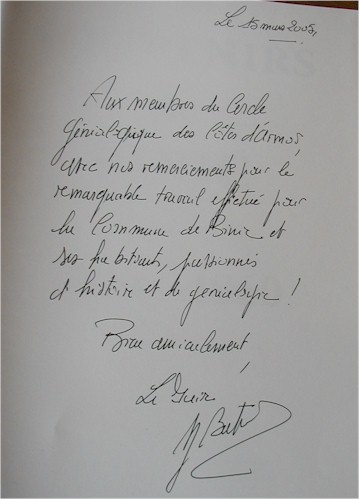 Le 15 mars 2005,
Aux membres du Cercle
Généalogique des Côtes d'Armor,
avec nos remerciements pour le
remarquable travail effectué pour
la Commune de Binic et
ses habitants, passionnés
d'histoire et de généalogie !
Bien amicalement,
Le Maire